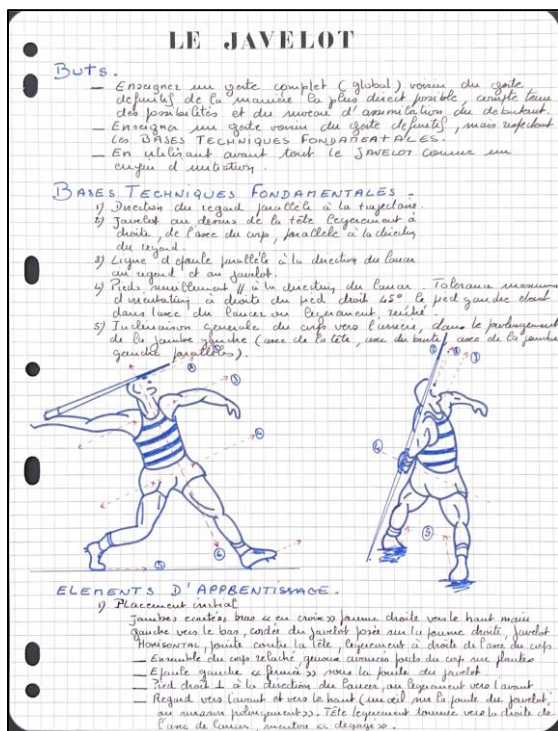 LE JAVELOT
BUTS.
— Enseigner un geste complet (global) voisin du geste
définitif de la manière la plus direct possible, compte tenu
des possibilités et du niveau d'assimilation du débutant.
— Enseigner un geste voisin du geste définitif, mais respectant
les BASES TECHNIQUES FONDAMENTALES.
— En utilisant avant tout le JAVELOT comme un
engin d'initiation.
BASES TECHNIQUES FONDAMENTALES -
1) Direction du regard parallèle à la trajectoire.
2) Javelot au dessus de la tête légèrement à
droite, de l'axe du corp, parallèle à la direction
du regard.
3) Ligne d'épaule parallèle à la direction du lancer
au regard et au javelot.
4) Pieds sensiblement // à la direction du lancer. Tolérance maximum
d'orientation à droite du pied droit 45° le pied gauche étant
dans l'axe du lancer ou légèrement
5) Inclinaison générale du corp vers l'arrière, dans le prolongement
de la jambe gauche (axe de la tête, axe du buste, axe de la jambe
gauche parallèles).
ELEMENTS D'APPRENTISSAGE.
1) Placement initial
Jambes écartées bras « en croix » paume droite vers le haut main
gauche vers le bas, cordée du javelot posée sur la paume droite, javelot
HORISONTAL, pointe contre la tête, légèrement à droite de l'axe du corps.
— Ensemble du corp relaché, genoux avancés poids du corp sur plantes
— Epaule gauche « fermée » sous la pointe du javelot
— Pied droit ⊥ à la direction du lancer, ou légèrement vers l'avant
— Regard vers l'avant et vers le haut (un œil sur la pointe du javelot,
au ». Tête légèrement tournée vers la droite de
l'axe de lancer, menton « dégagé ».